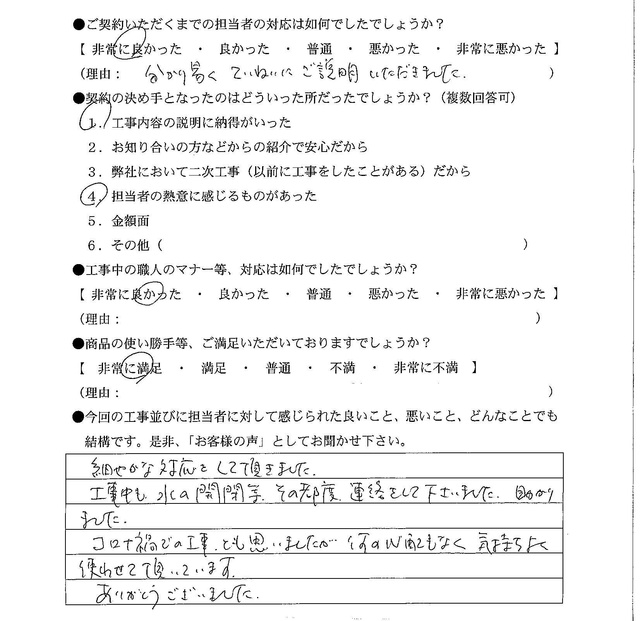 ●ご契約いただくまでの担当者の対応は如何でしたでしょうか？
【 非常に良かった ・ 良かった ・ 普通 ・ 悪かった ・ 非常に悪かった 】
（理由： 分かり易く ていねいにご説明いただきました. ）
●契約の決め手となったのはどういった所だったでしょうか？（複数回答可）
１．工事内容の説明に納得がいった
２．お知り合いの方などからの紹介で安心だから
３．弊社において二次工事（以前に工事をしたことがある）だから
４．担当者の熱意に感じるものがあった
５．金額面
６．その他（ ）
●工事中の職人のマナー等、対応は如何でしたでしょうか？
【 非常に良かった ・ 良かった ・ 普通 ・ 悪かった ・ 非常に悪かった 】
（理由： ）
●商品の使い勝手等、ご満足いただいておりますでしょうか？
【 非常に満足 ・ 満足 ・ 普通 ・ 不満 ・ 非常に不満 】
（理由： ）
●今回の工事並びに担当者に対して感じられた良いこと、悪いこと、どんなことでも
結構です。是非、「お客様の声」としてお聞かせ下さい。
細やかな対応をして頂きました.
工事中も 水の開閉等 その都度 連絡をして下さいました. 助かり
ました.
コロナ禍での工事、とも思いましたが 何の心配もなく 気持ちよく
使わせて頂いています.
ありがとうございました.